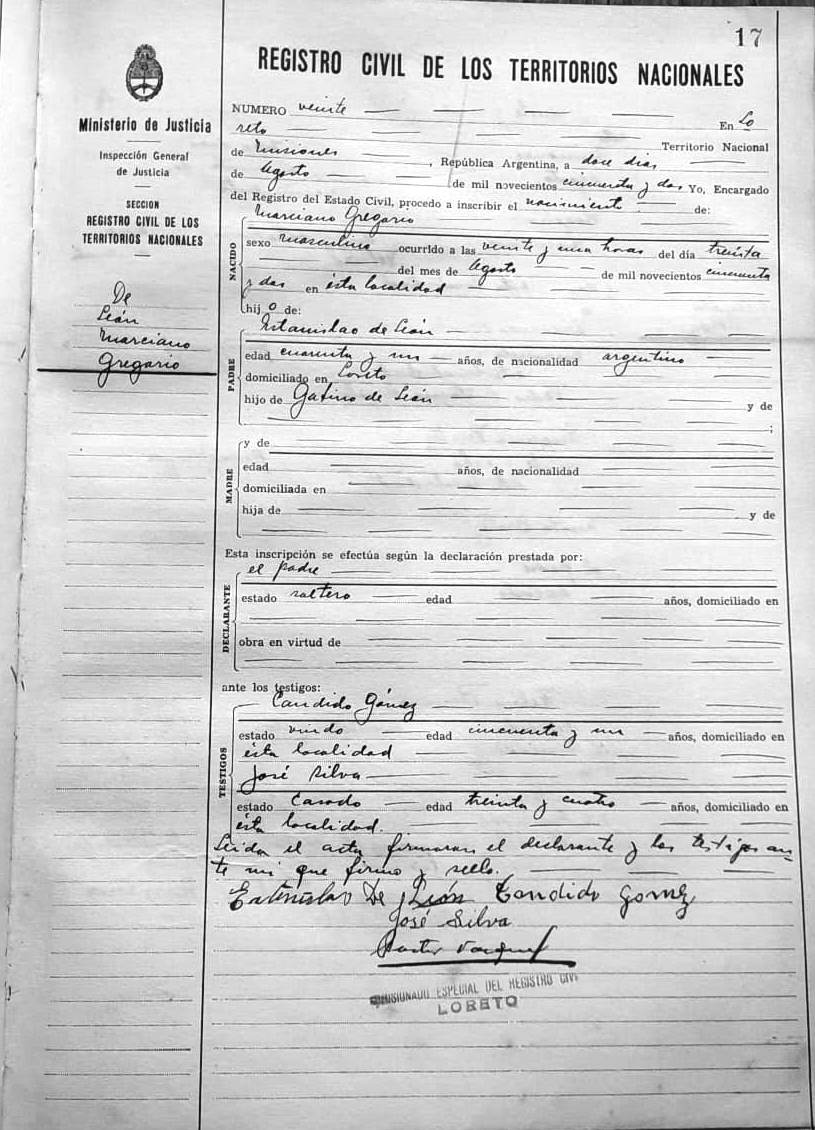 17
REGISTRO CIVIL DE LOS TERRITORIOS NACIONALES
Ministerio de Justicia
Inspección General
de Justicia
SECCION
REGISTRO CIVIL DE LOS
TERRITORIOS NACIONALES
De
León
Marciano
Gregorio
NUMERO veinte En Lo
reto Territorio Nacional
de Misiones, República Argentina, a doce dias
de Agosto de mil novecientos cincuenta y dos Yo, Encargado
del Registro del Estado Civil, procedo a inscribir el nacimiento de:
NACIDO
Marciano Gregorio
sexo masculino ocurrido a las veinte y una horas del día treinta
del mes de Agosto de mil novecientos cincuenta
y dos en ésta localidad
hijo de:
PADRE
Estanislao de León
edad cuarenta y un años, de nacionalidad argentino
domiciliado en Loreto
hijo de de León y de
;
MADRE
y de
edad años, de nacionalidad
domiciliada en
hija de y de
Esta inscripción se efectúa según la declaración prestada por:
DECLARANTE
el padre
estado soltero edad años, domiciliado en
obra en virtud de
ante los testigos:
TESTIGOS
Candido Gómez
estado viudo edad cincuenta y un años, domiciliado en
ésta localidad
José Silva
estado Casado edad treinta y cuatro años, domiciliado en
ésta localidad.
Leida el acta firmaron el declarante y los testigos an-
te mi que firmo y sello.
De León Candido Gomez
José Silva
COMISIONADO ESPECIAL DEL REGISTRO CIVI
LORETO